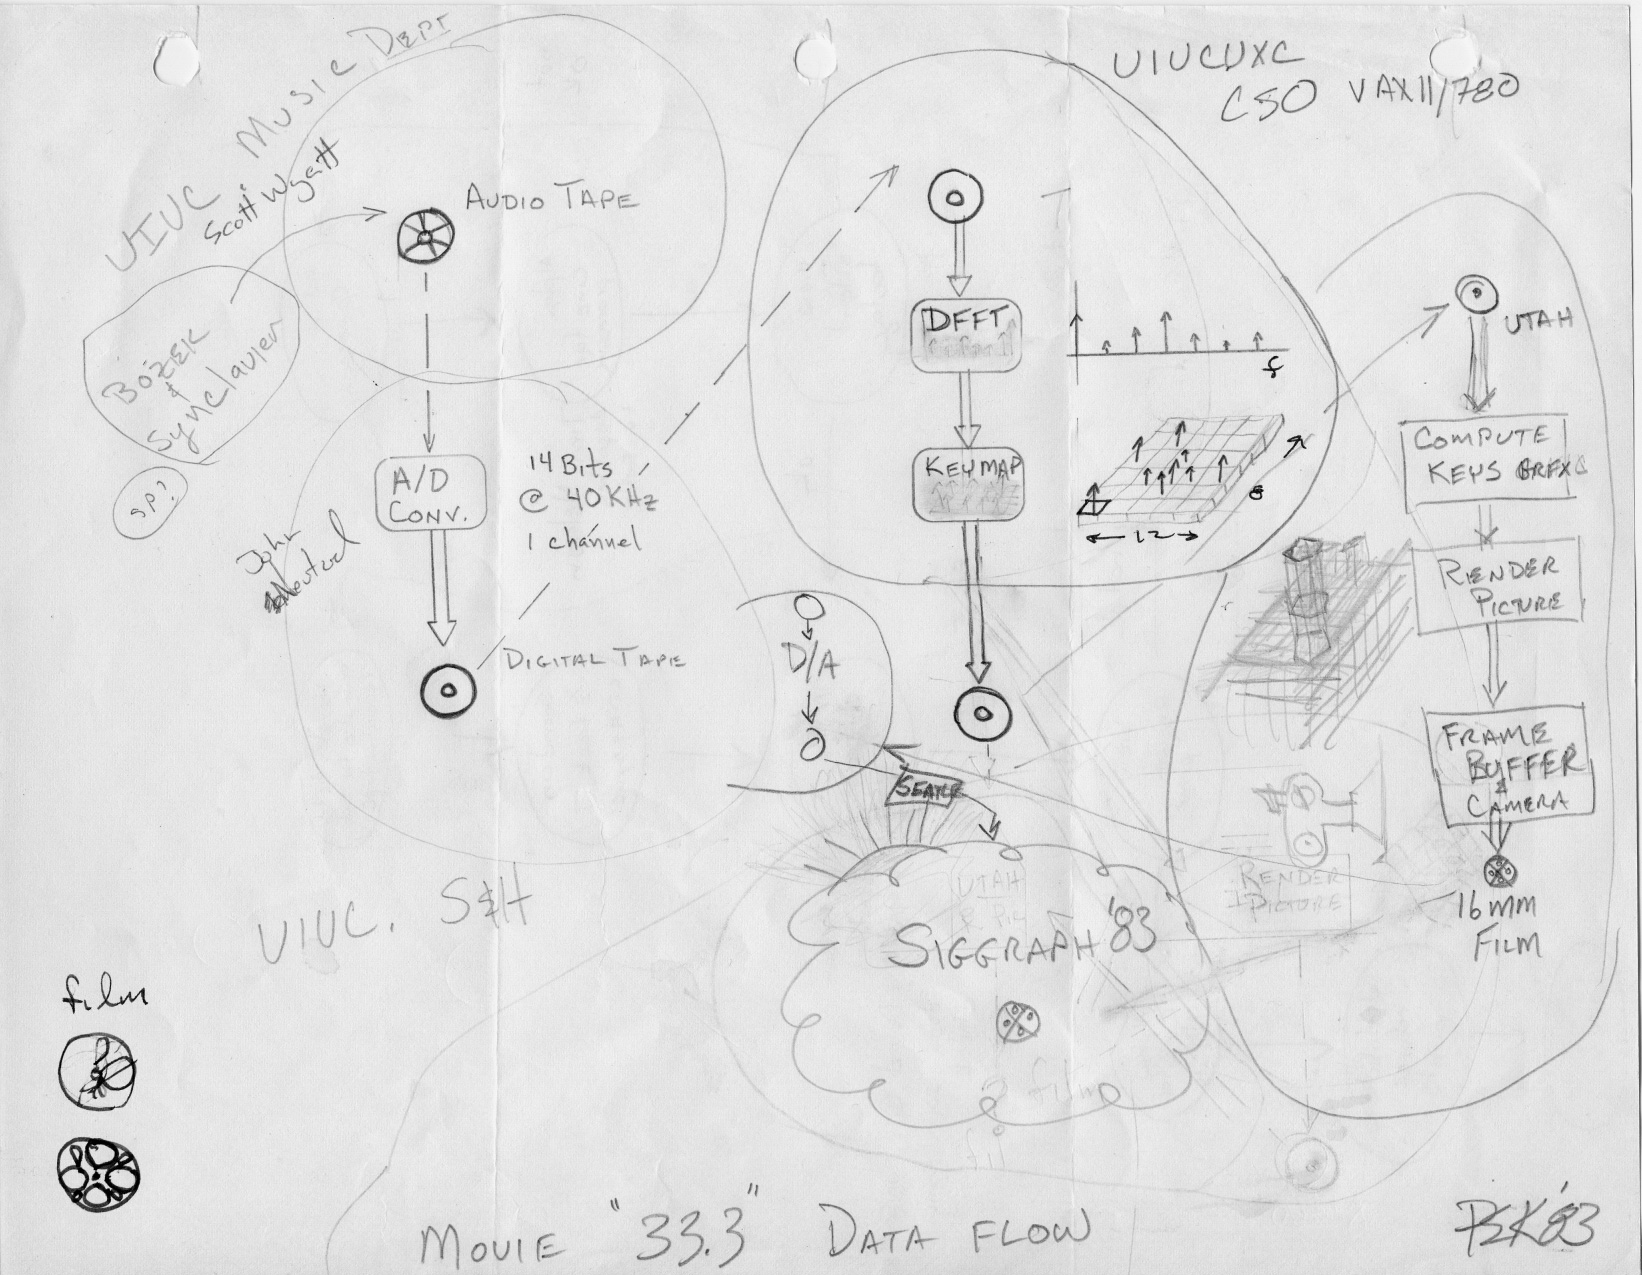 UIUC MUSIC DEPT
Scott Wyatt
AUDIO TAPE
BOZEK
&
Synclavier
SP?
A/D
CONV.
14 Bits
@ 40KHz
1 channel
John
DIGITAL TAPE
UIUC. S&H
film
UIUCUXC
CSO VAX11/780
DFFT
f
KEYMAP
8
12
D/A
SIGGRAPH '83
UTAH
film
UTAH
COMPUTE
KEYS GRFX
RENDER
PICTURE
FRAME
BUFFER
&
CAMERA
16mm
FILM
RENDER
PICTURE
MOVIE "33.3" DATA FLOW
PSK'83